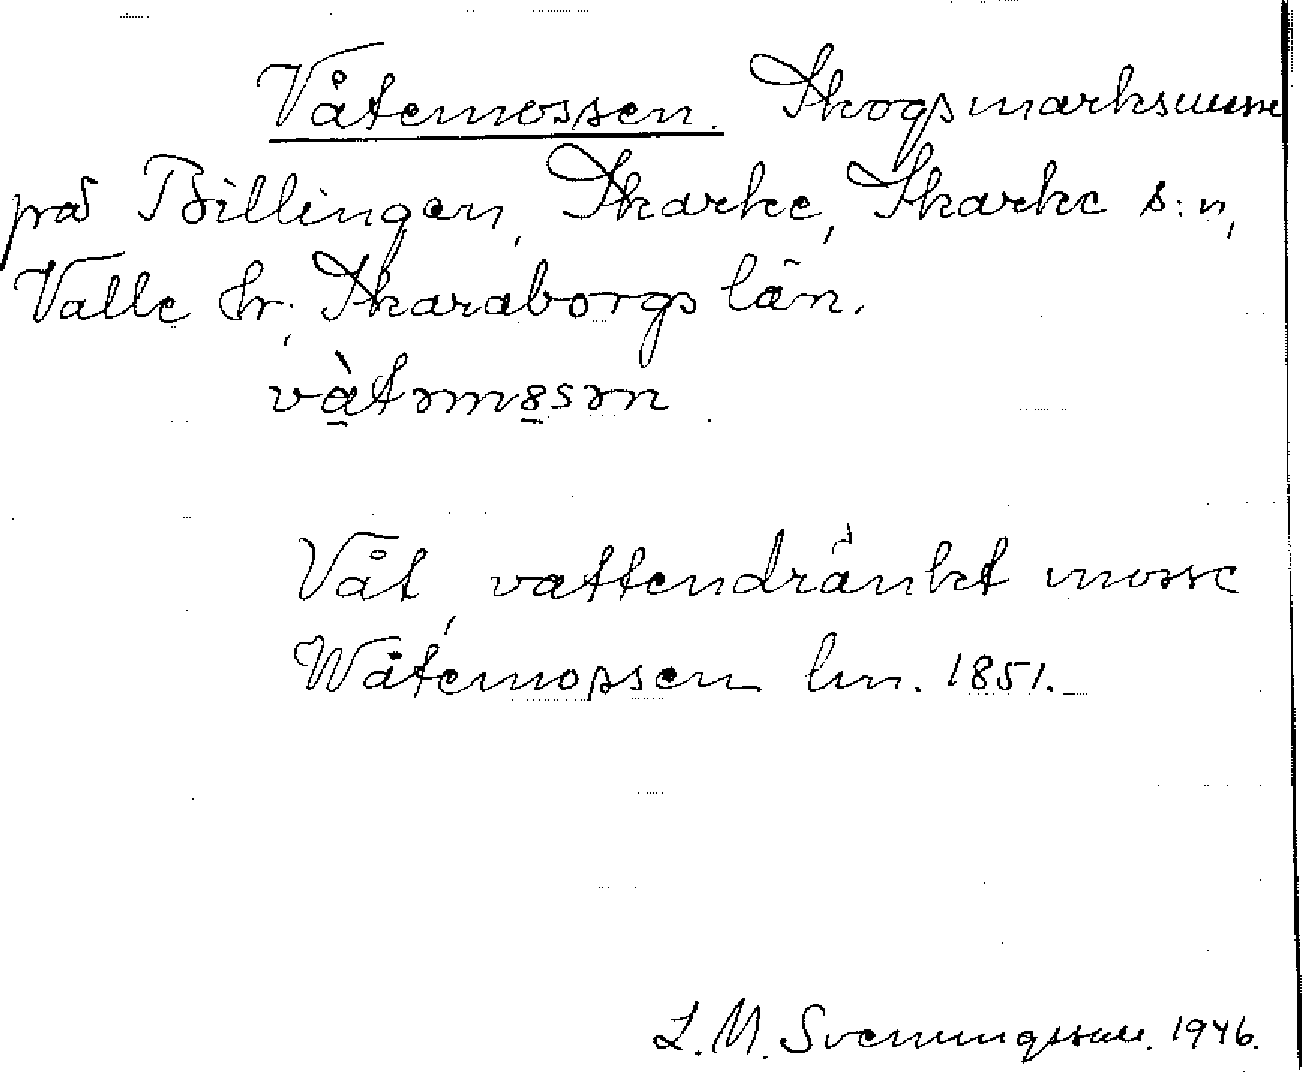 Våtemossen. Skogsmarksmosse
på Billingen, Skarke, Skarke s:n,
Valle hr, Skaraborgs län.
vàtəmȣsən
Våt, vattendränkt mosse
Wåtemossen lm. 1851.
L. M. Svenungsson. 1946.